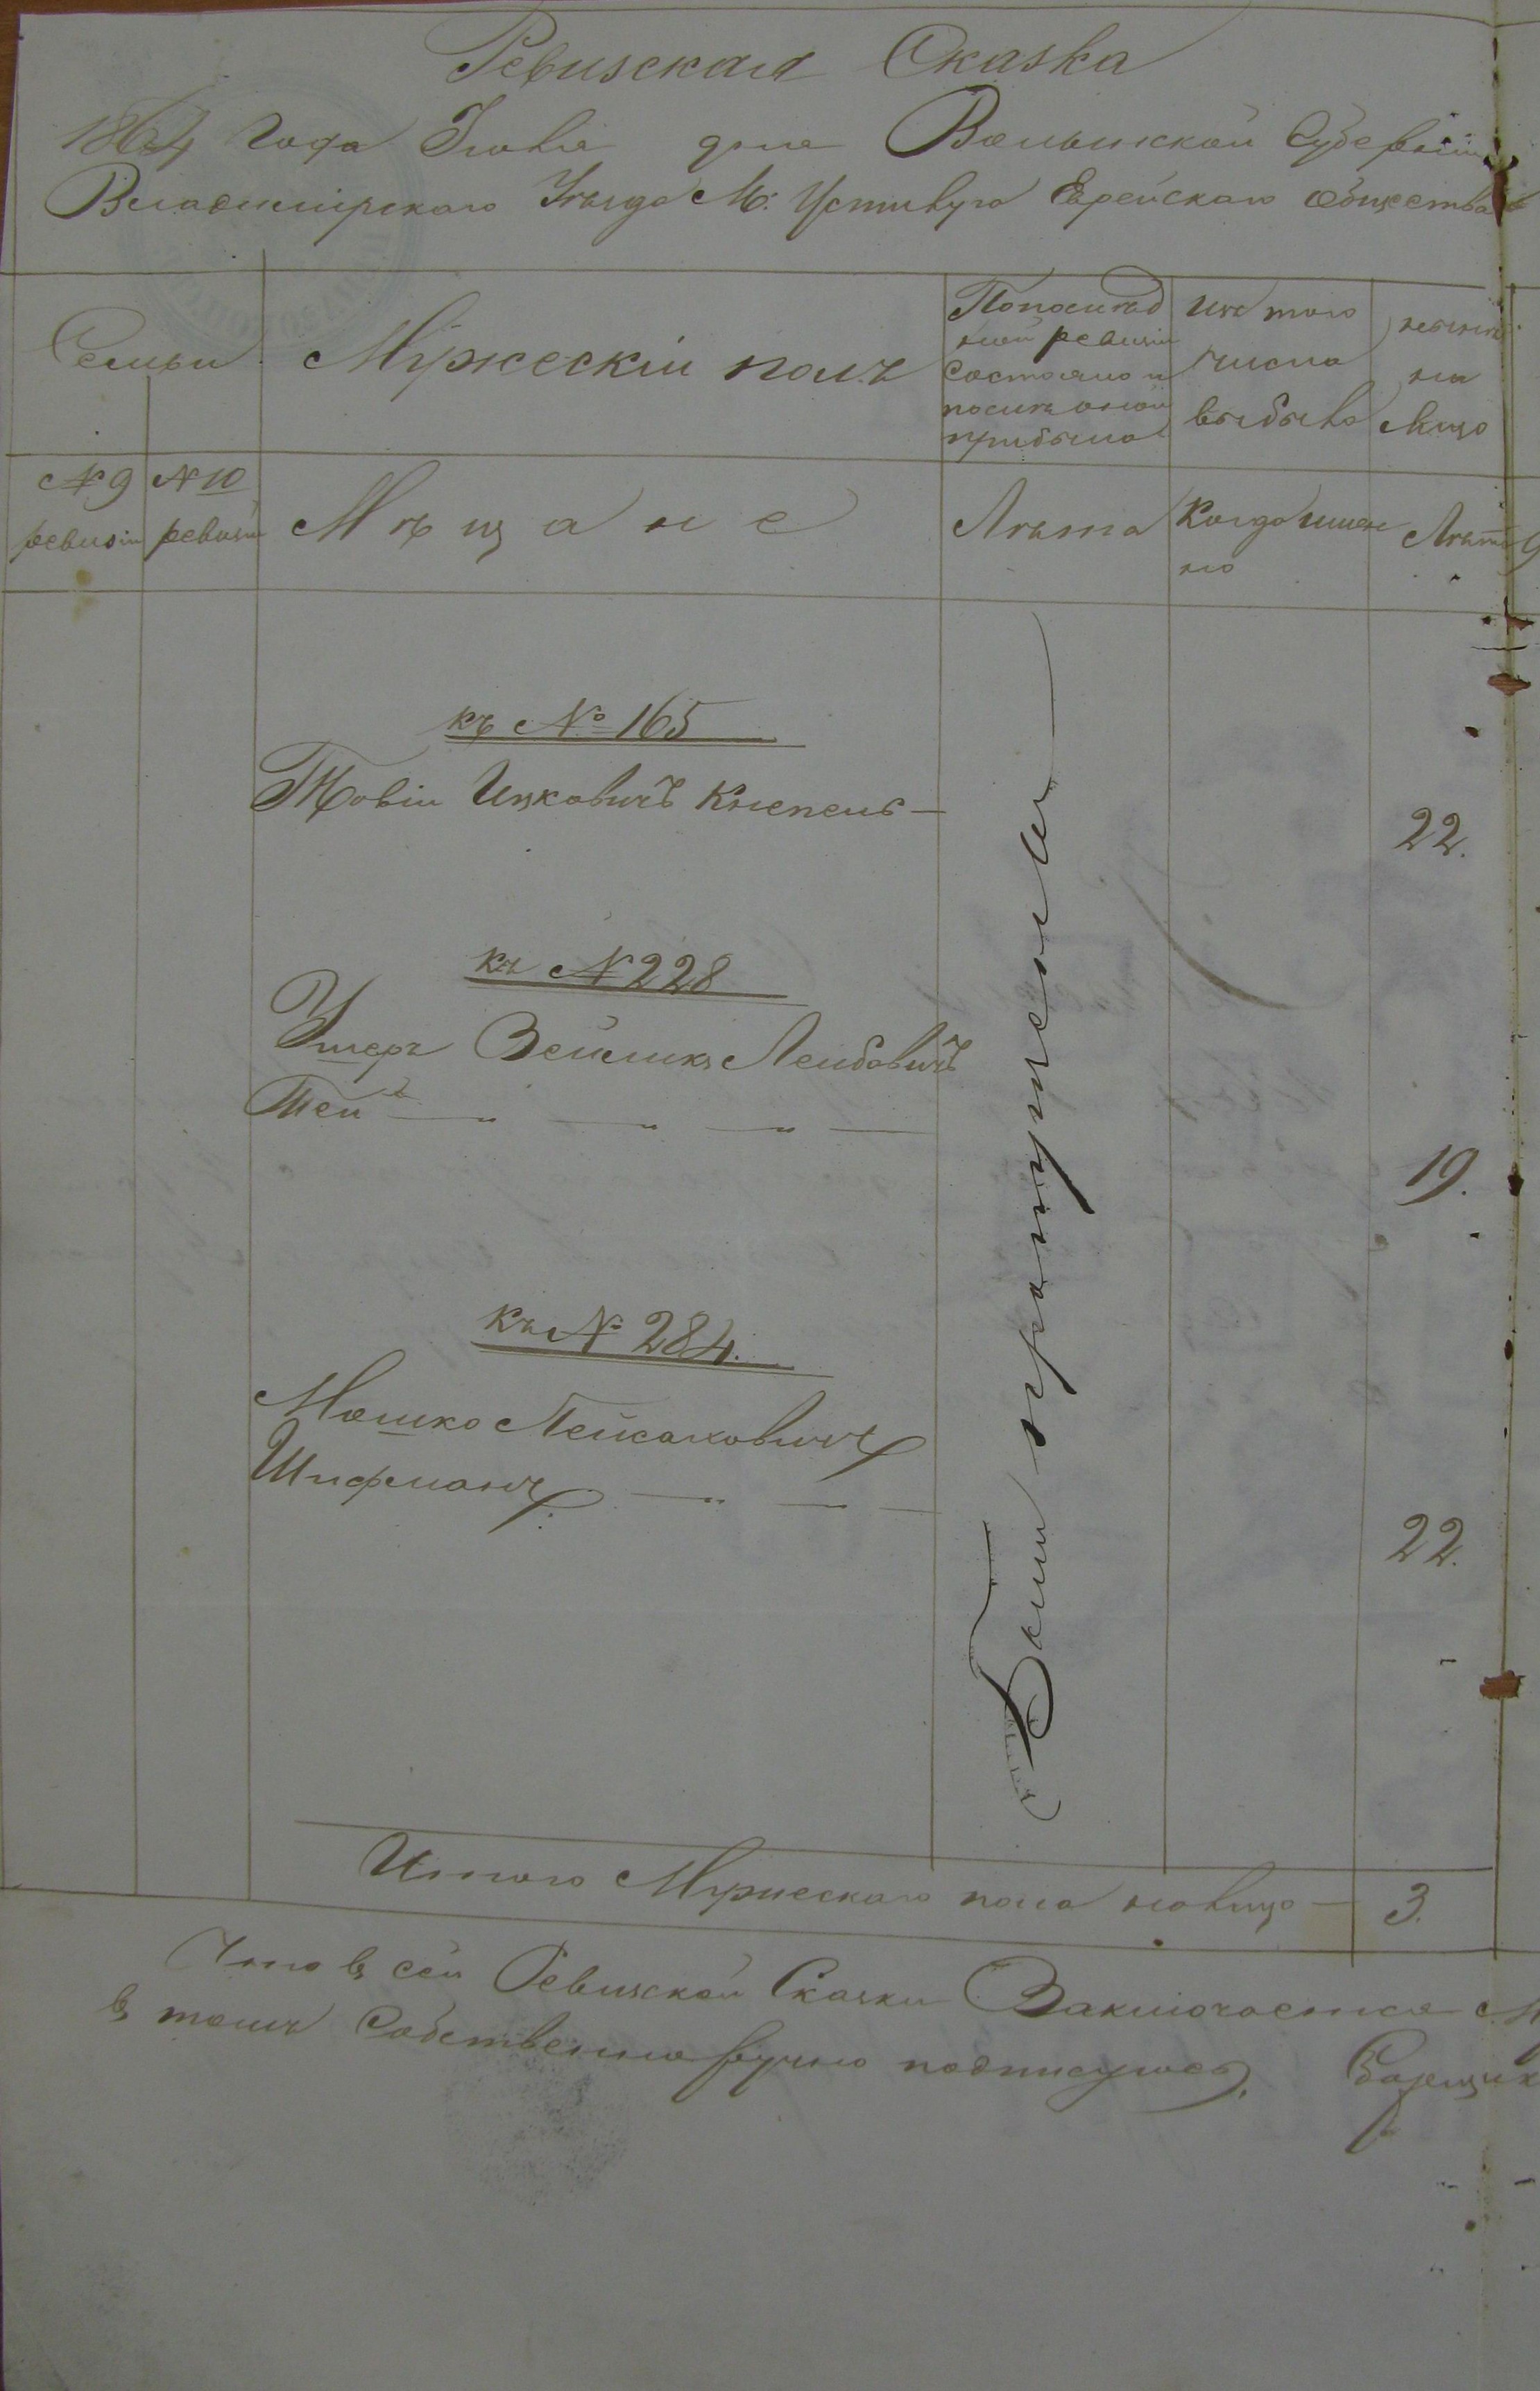 Ревизская Сказка
1864 года Июня дня Волынской Губернии
Владимирскаго Уезда М: Устилуга Еврейскаго общества
Семьи
Мужескій полъ
По послед
ней ревизіи
состояло и
после оной
прибыло
Изъ того
числа
выбыло
ныне
на
лицо
№ 9
ревизіи
№ 10
ревизіи
Мѣщане
Лѣта
Когда имен
но
Лѣта
къ № 165
Товіи Ицковичъ Кнепель
22.
къ № 228
Умеръ Зейликъ Лейбовичъ
Тей
19.
Къ № 284.
Мошко Пейсаховичъ
Шифманъ
22.
Были пропущены
Итого Мужескаго пола на лицо
3.
Что въ сей Ревизской Сказки Заключается
въ томъ Собственно ручно подписуюсь,